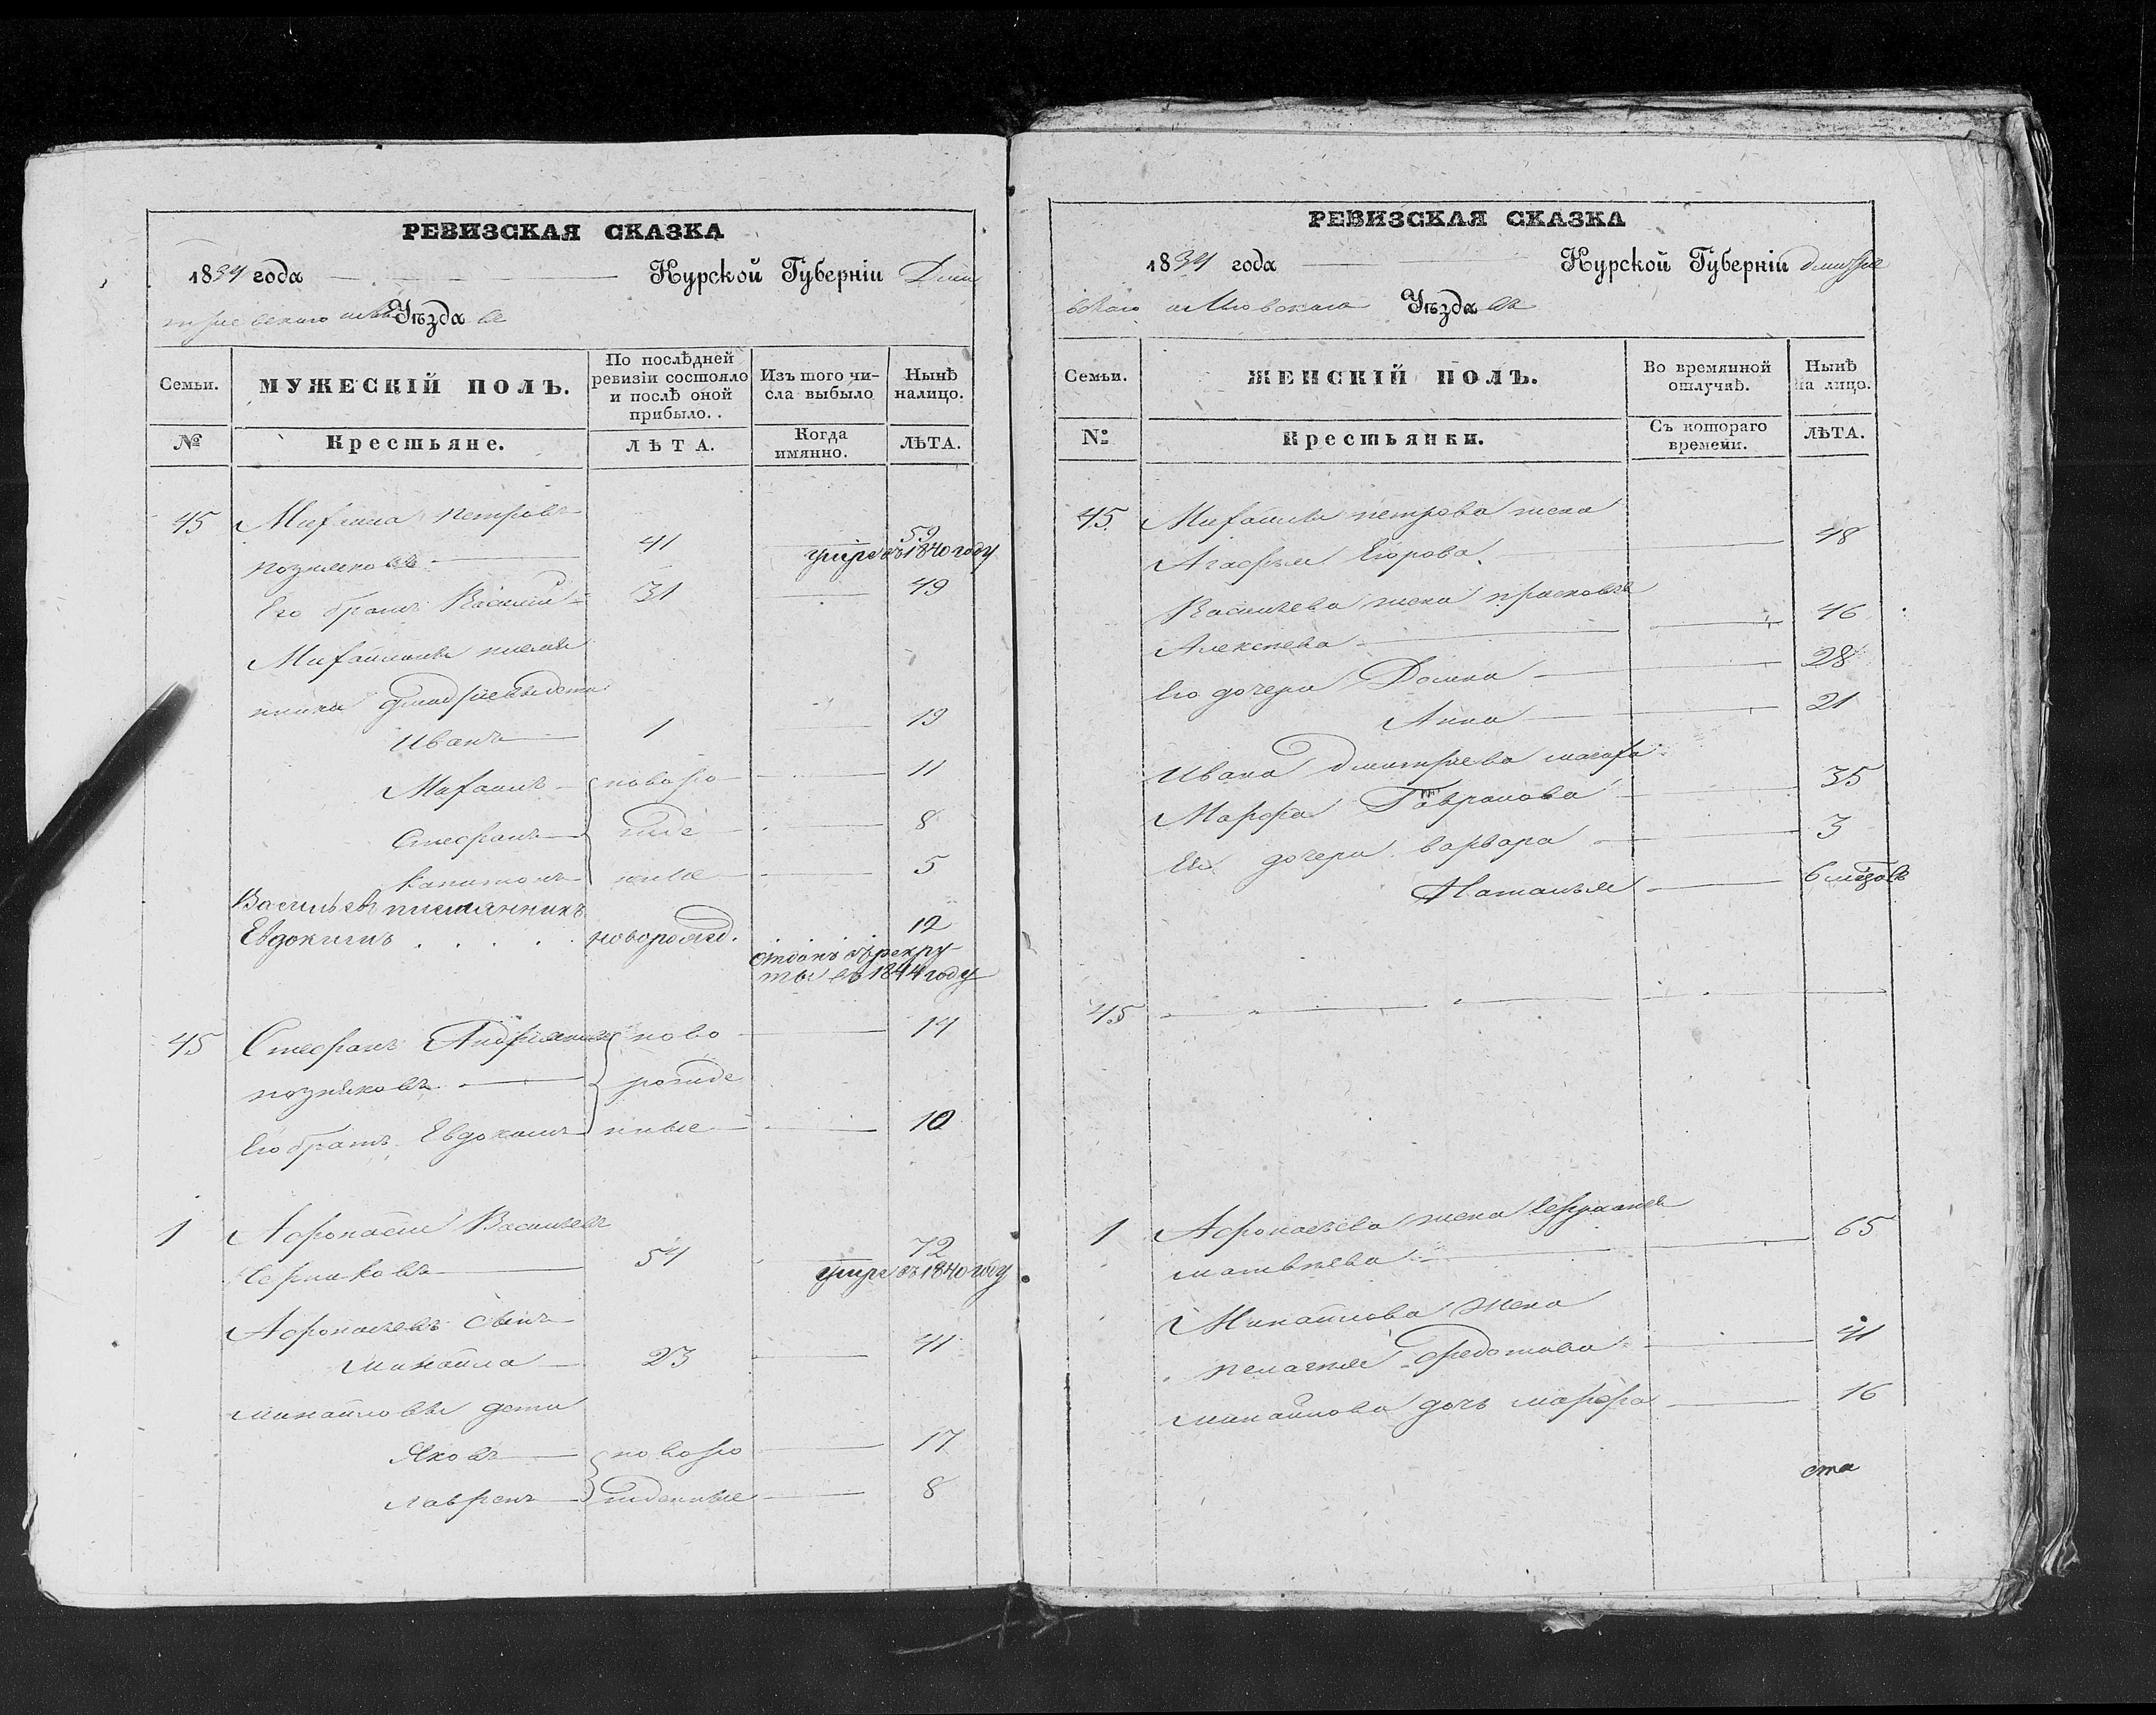 РЕВИЗСКАЯ СКАЗКА
1834 года Курской Губерніи Дми
Уѣзда
Семьи.
МУЖЕСКІЙ ПОЛЪ.
По послѣдней ревизіи состояло и послѣ оной прибыло..
Изъ того числа выбыло
Нынѣ налицо.
№
Крестьяне.
ЛѢТА.
Когда имянно.
ЛѢТА.
45 Михаила петровъ
позняковъ 41 59
умре въ 1840 году
Его братъ Василій 31 49
Михайловы племян
ники
Иванъ 1 19
Михаилъ новоро 11
Стефанъ жде 8
Капитонъ нные 5
Васильевъ племянникъ
Евдокимъ . . . . . новорожд. 12
отданъ въ рекру
ты въ 1844 году
45 Стефанъ ново 14
позняковъ рожде
Его братъ Евдокимъ нные 10
1 Афонасій Васильевъ
Черниковъ 54 72
умре въ 1840 году
Афонасьевъ сынъ
михайла 23 41
михайловы дети
Яковъ новоро 17
Лавренъ жденные 8
РЕВИЗСКАЯ СКАЗКА
1834 года Курской Губерніи дмитріе
вскаго Уѣзда
Семьи.
ЖЕНСКІЙ ПОЛЪ.
Во времянной отлучкѣ.
Нынѣ на лицо.
№
Крестьянки.
Съ котораго времени.
ЛѢТА.
45 Михайлы петрова жена
Агафья Егорова 48
Васильева жена прасковья
Алексеева 46
Его дочери Домна 28
Анна 21
Ивана дмитріева мачиха
Марфа 35
Ея дочери варвара 3
Наталья 6
45
1 Афонасьева жена
матвѣева 65
Михайлова жена
пелагея Федотова 41
михайлова дочь марфа 16